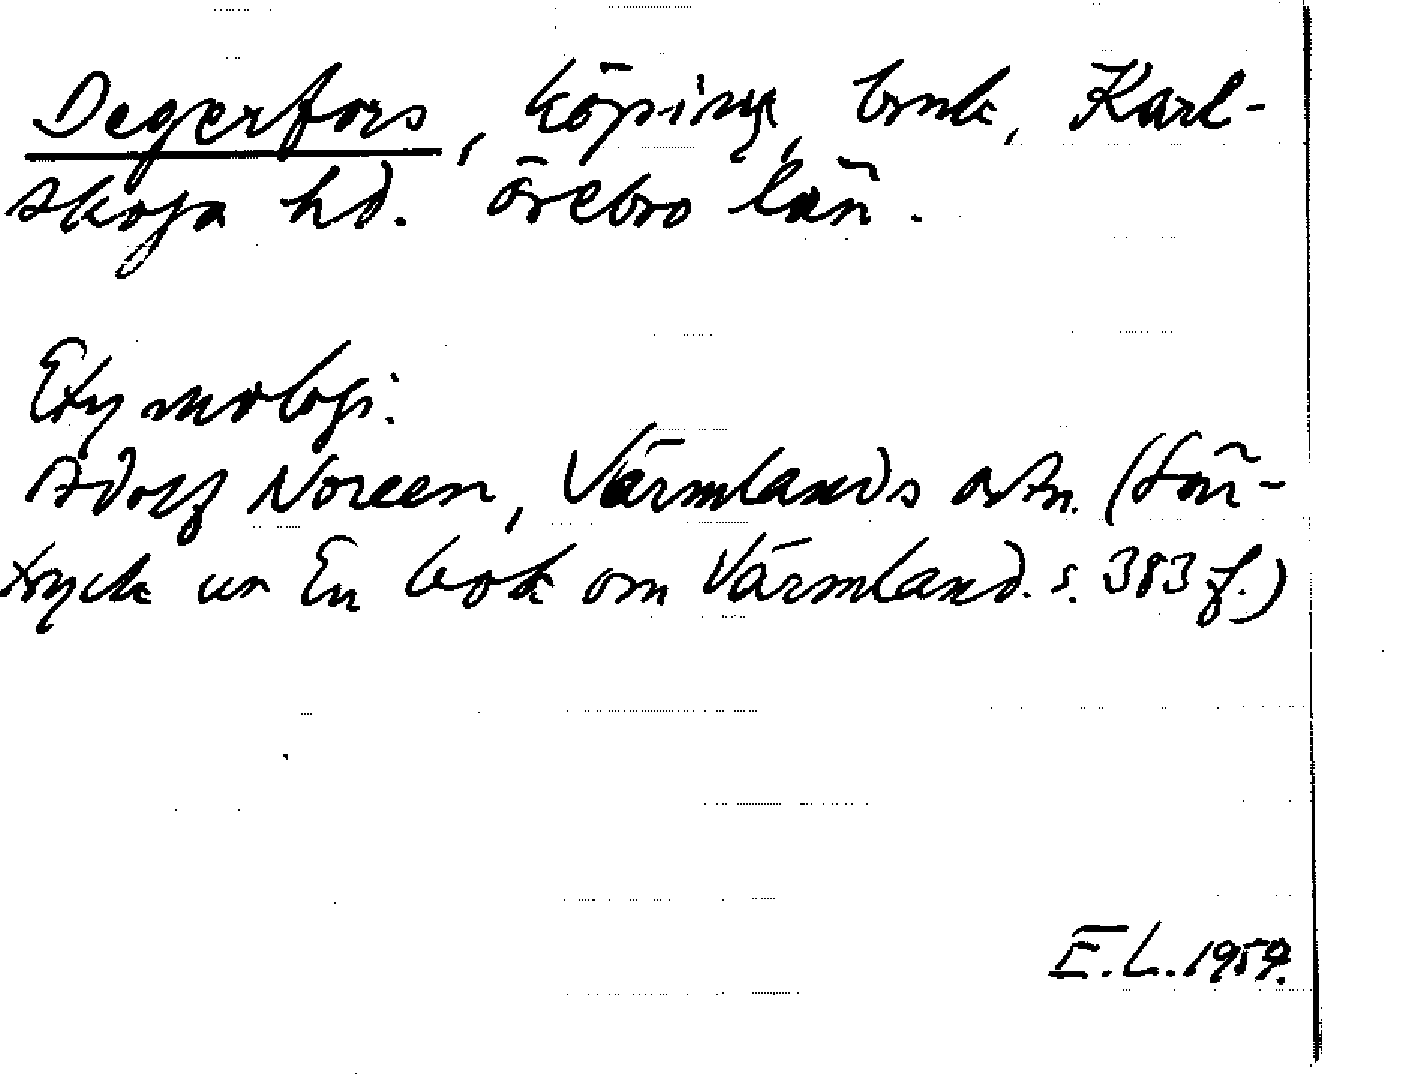 Degerfors, köping, bruk, Karl-
skoga hd. örebro län.
Etymologi:
Adolf Noreen, Värmlands ortn. (Sär-
tryck ur En bok om Värmland. s. 383 f.)
E.L. 1959.